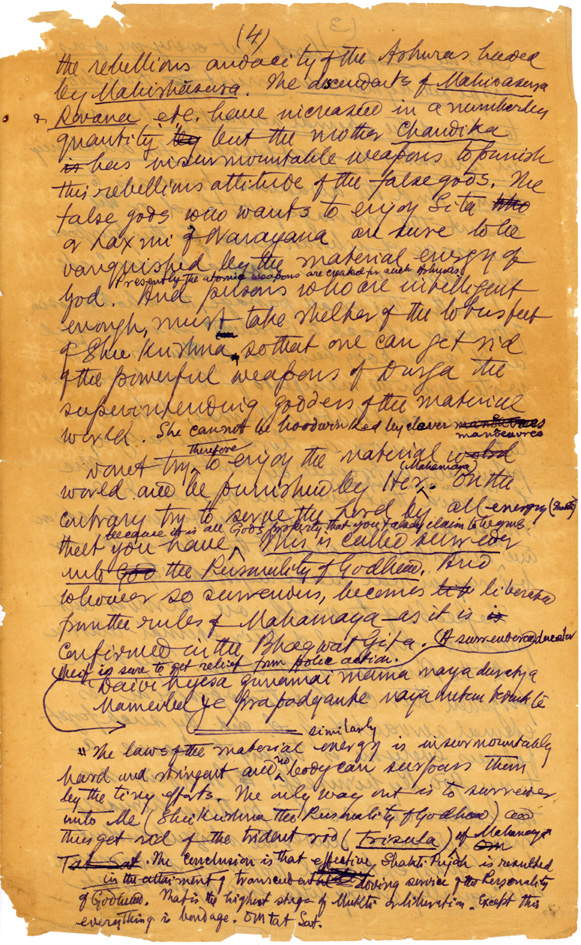 (4)
the rebellious audacity of the Ashuras headed
by Mahishasura. The descendants of Mahisasura
& Ravana etc. have increased in a number by
quantity by but the mother Chandika
is has insurmountable weapons to punish
this rebellious attitude of the false gods. The
false gods who wants to enjoy Sita who
or Laxmi of Narayana are sure to be
vanquished by the material energy of
Presently the atomic weapons are created for such Ashuras
God. And persons who are intelligent
enough, must take shelter of the lotus feet
of Shri Krishna, so that one can get rid
of the powerful weapons of Durga the
superintending goddess of the material
world. She cannot be hoodwinked by clever
manoeuvres
therefore
wanot try to enjoy the material world
world and be punished by Her. (Mahamaya) On the
contrary try to serve the Lord by all energy (Shakti)
because it is all Gods property that you falsely claim to be yours.
that you have. This is called surrender
unto God the Personality of Godhead. And
whoever so surrenders, becomes liberated
from the rules of Mahamaya as it is is
confirmed in the Bhagwat Gita. (A surrendered dacoit or
thief is sure to get relief from police action.
Daivi hyesa gunamai mama maya duratya
Mamebal ye prapadyante maya metam taranti te
similarly
"The laws of the material energy is insurmountably
hard and stringent and no body can surpass them
by the tiny efforts. The only way out is to surrender
unto Me (Shri Krishna the Personality of Godhead) and
thus get rid of the trident rod (Trisula) of Mahamaya. Om
Tat Sat. The conclusion is that effective Shakti Pujah is resulted
in the attainment of transcendental loving service of the Personality
of Godhead. That is the highest stage of Mukti or liberation. Except this
everything is bondage. Om tat Sat.